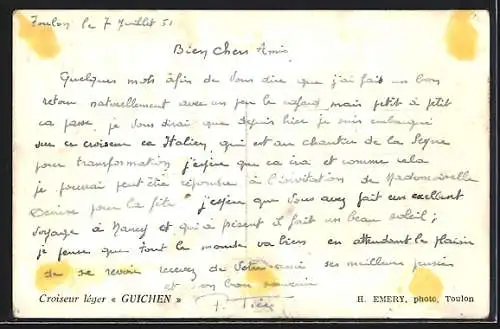 Toulon le 7 Juillet 51
Bien Chers Amis
Quelques mots afin de vous dire que j'ai fait un bon
retour naturellement avec un peu le cafard mais petit à petit
ca passe, je vous dirai que depuis hier je suis embarqué
sur ce croiseur ex Italien, qui est au chantier de la Seyne
pour transformation j'espère que ca ira et comme cela
je pouvais peut être répondre à l'invitation de Mademoiselle
Denise pour la fête j'espère que vous avez fait un excellent
voyage à Nancy et qu'à présent il fait un beau soleil;
je pense que tout le monde va bien en attendant le plaisir
de se revoir recevez de votre ami ses meilleurs pensées
et un bon souvenir
Croiseur léger « GUICHEN »
H. EMERY, photo, Toulon